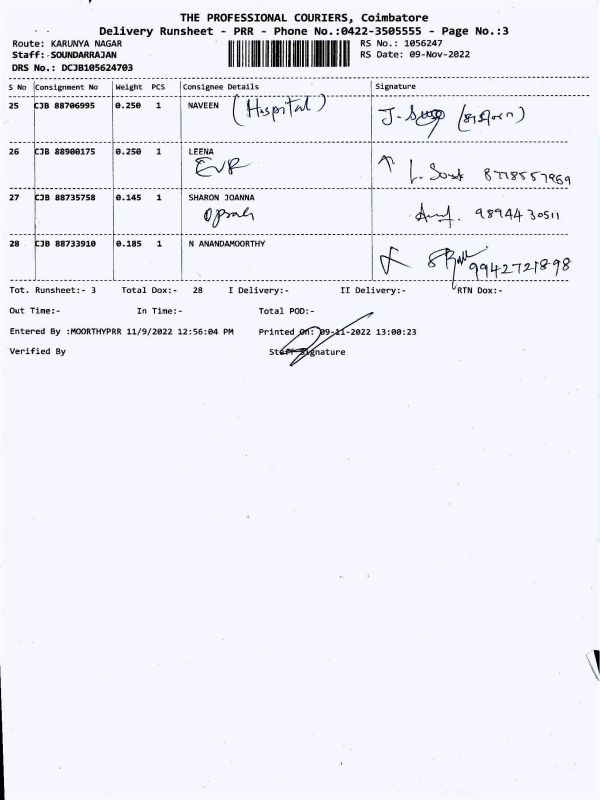 THE PROFESSIONAL COURIERS, Coimbatore
Delivery Runsheet - PRR - Phone No.:0422-3505555 - Page No.:3
Route: KARUNYA NAGAR RS No.: 1056247
Staff:-SOUNDARRAJAN RS Date: 09-Nov-2022
DRS No.: DCJB105624703
S No Consignment No Weight PCS Consignee Details Signature
25 CJB 88706995 0.250 1 NAVEEN (Hospital)
26 CJB 88900175 0.250 1 LEENA
EVR 8778557969
27 CJB 88735758 0.145 1 SHARON JOANNA
9894430511
28 CJB 88733910 0.185 1 N ANANDAMOORTHY
9942721898
Tot. Runsheet:- 3 Total Dox:- 28 I Delivery:- II Delivery:- RTN Dox:-
Out Time:- In Time:- Total POD:-
Entered By :MOORTHYPRR 11/9/2022 12:56:04 PM Printed On: 09-11-2022 13:00:23
Verified By Staff Signature